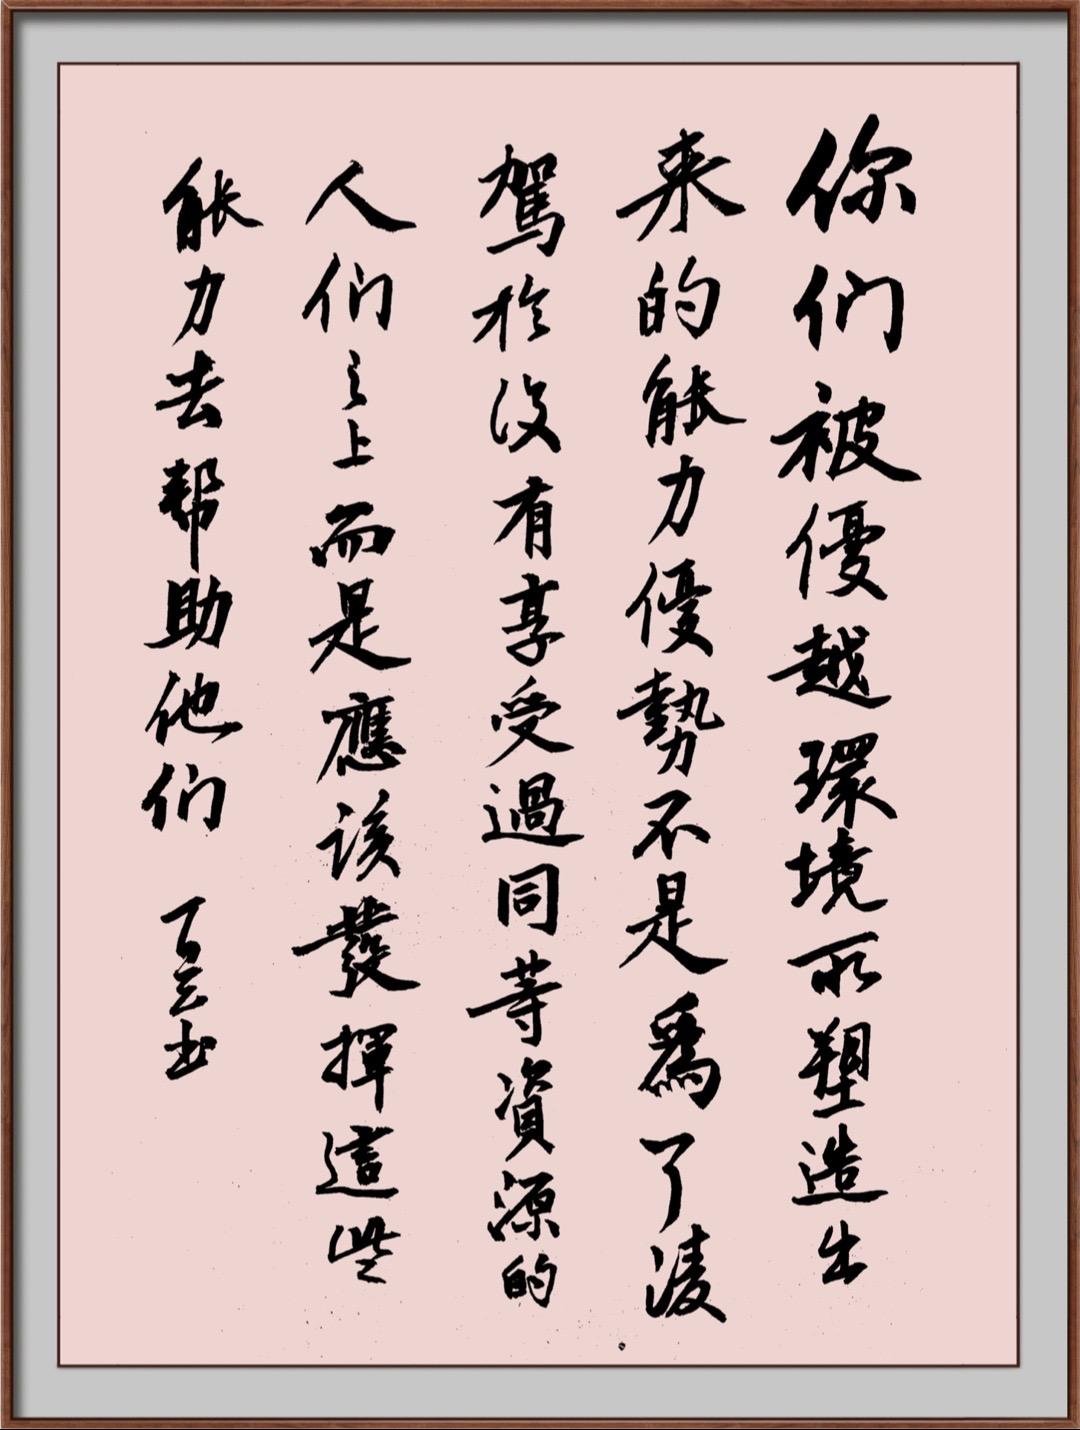 你们被優越環境所塑造出
来的能力優勢不是爲了凌
駕於没有享受過同等資源的
人们之上而是應该發揮這些
能力去帮助他们 丁